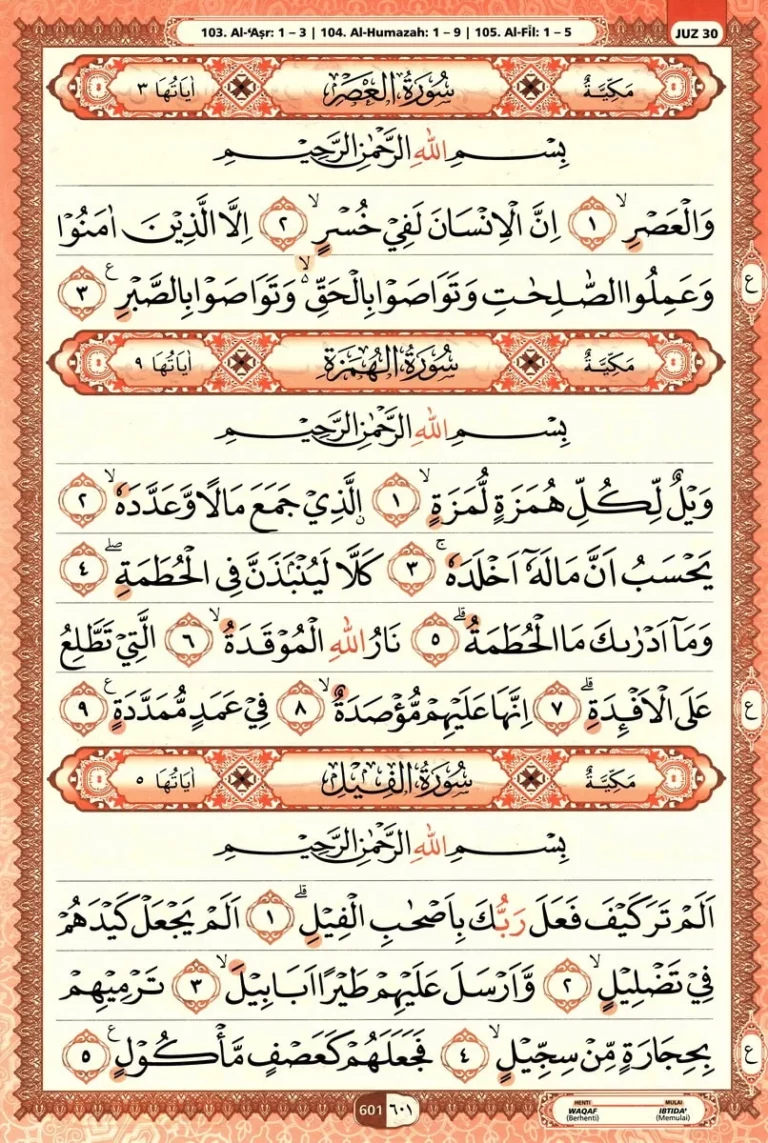 103. Al-‘Aṣr: 1 – 3 | 104. Al-Humazah: 1 – 9 | 105. Al-Fīl: 1 – 5
JUZ 30
مَكِّيَّةٌ سُوْرَةُ الْعَصْرِ اٰيَاتُهَا ٣
بِسْمِ اللّٰهِ الرَّحْمٰنِ الرَّحِيْمِ
وَالْعَصْرِۙ ١ اِنَّ الْاِنْسَانَ لَفِيْ خُسْرٍۙ ٢ اِلَّا الَّذِيْنَ اٰمَنُوْا
وَعَمِلُوا الصّٰلِحٰتِ وَتَوَاصَوْا بِالْحَقِّ ەۙ وَتَوَاصَوْا بِالصَّبْرِ ࣖ ٣
ع
مَكِّيَّةٌ سُوْرَةُ الْهُمَزَةِ اٰيَاتُهَا ٩
بِسْمِ اللّٰهِ الرَّحْمٰنِ الرَّحِيْمِ
وَيْلٌ لِّكُلِّ هُمَزَةٍ لُّمَزَةٍۙ ١ ۨالَّذِيْ جَمَعَ مَالًا وَّعَدَّدَهٗۙ ٢
يَحْسَبُ اَنَّ مَالَهٗٓ اَخْلَدَهٗۚ ٣ كَلَّا لَيُنْۢبَذَنَّ فِى الْحُطَمَةِۖ ٤
وَمَآ اَدْرٰىكَ مَا الْحُطَمَةُۗ ٥ نَارُ اللّٰهِ الْمُوْقَدَةُۙ ٦ الَّتِيْ تَطَّلِعُ
عَلَى الْاَفْـِٕدَةِۗ ٧ اِنَّهَا عَلَيْهِمْ مُّؤْصَدَةٌۙ ٨ فِيْ عَمَدٍ مُّمَدَّدَةٍ ࣖ ٩
ع
مَكِّيَّةٌ سُوْرَةُ الْفِيْلِ اٰيَاتُهَا ٥
بِسْمِ اللّٰهِ الرَّحْمٰنِ الرَّحِيْمِ
اَلَمْ تَرَ كَيْفَ فَعَلَ رَبُّكَ بِاَصْحٰبِ الْفِيْلِۗ ١ اَلَمْ يَجْعَلْ كَيْدَهُمْ
فِيْ تَضْلِيْلٍۙ ٢ وَّاَرْسَلَ عَلَيْهِمْ طَيْرًا اَبَابِيْلَۙ ٣ تَرْمِيْهِمْ
بِحِجَارَةٍ مِّنْ سِجِّيْلٍۙ ٤ فَجَعَلَهُمْ كَعَصْفٍ مَّأْكُوْلٍ ࣖ ٥
ع
601 ٦٠١
HENTI MULAI
WAQAF IBTIDA'
(Berhenti) (Memulai)